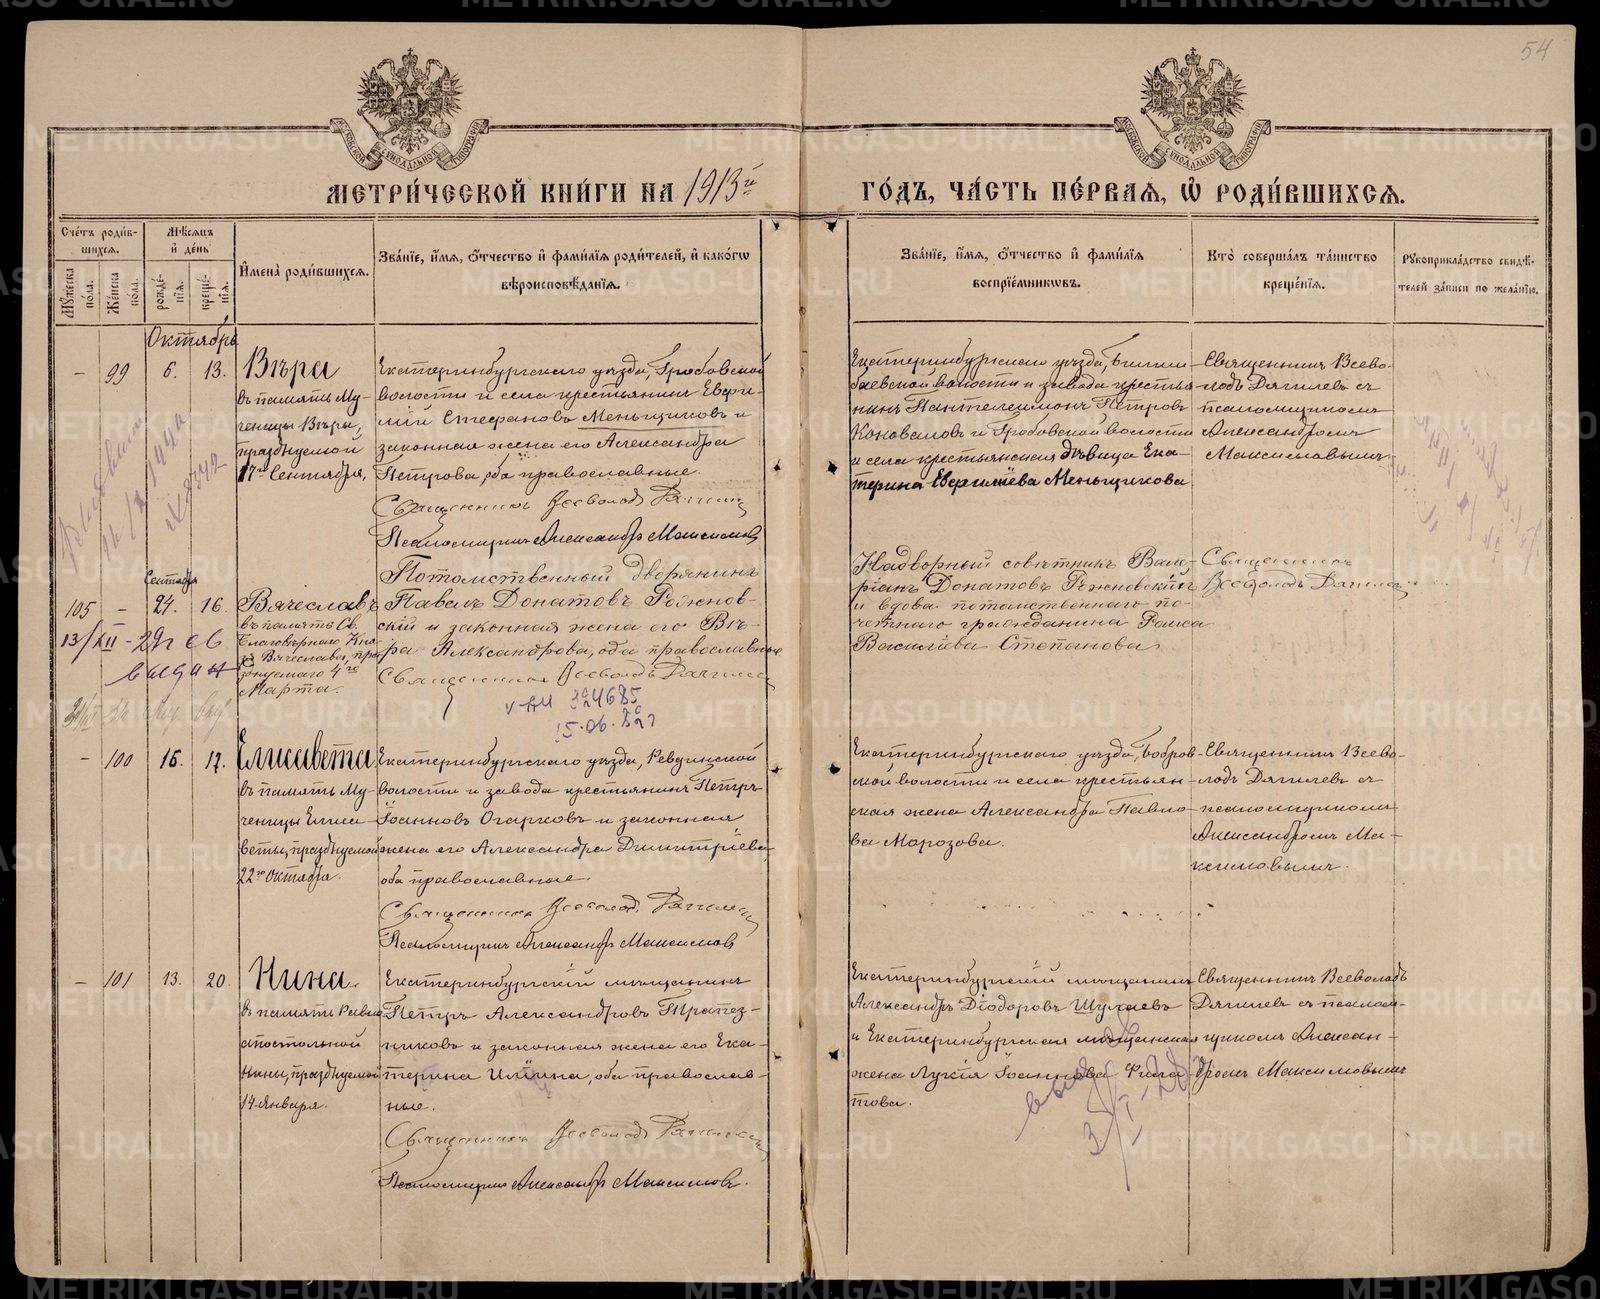 54
МОСКОВСКОЙ СѴНОДАЛЬНОЙ ТИПОГРАФІИ
МОСКОВСКОЙ СѴНОДАЛЬНОЙ ТИПОГРАФІИ
МЕТРИ́ЧЕСКОЙ КНИ́ГИ НА 1913й
ГО́ДЪ, ЧА́СТЬ ПЕ́РВАѦ, Ѡ҆ РОДИ́ВШИХСѦ.
Сче́тъ роди́в-
шихсѧ.
Мꙋ́жеска по́ла.
Же́нска по́ла.
Мѣ́сѧцъ и҆ де́нь
рожде́-нїѧ.
креще́-нїѧ.
И҆мена̀ роди́вшихсѧ.
Зва́нїе, и҆́мѧ, ѻ҆́тчество и҆ фами́лїѧ роди́телей, и҆ како́гѡ
вѣроисповѣ́данїѧ.
Зва́нїе, и҆́мѧ, ѻ҆́тчество и҆ фами́лїѧ
воспрїе́мникѡвъ.
Кто̀ соверша́лъ та́инство
креще́нїѧ.
Рꙋкоприкла́дство свидѣ́-
телей за́писи по жела́нїю.
Октябрь
- 99 6. 13.
Вѣра
въ память Му-
ченицы Вѣры,
празднуемой
17го Сентября.
Екатеринбургскаго уѣзда, Гробовской
волости и села крестьянинъ Еврги-
лій Стефановъ Меньщиковъ и
законная жена его Александра
Петрова, оба православные.
Священникъ Всеволодъ
Псаломщикъ Александръ Максимовъ
Екатеринбургскаго уѣзда,
волости и завода крестья-
нинъ Пантелеимонъ Петровъ
Коноваловъ и Гробовской волости
и села крестьянская дѣвица Ека-
терина Евргиліева Меньщикова
Священникъ Всево-
лодъ Дягилевъ съ
псаломщикомъ
Александромъ
Максимовымъ
Сентябрь
105 - 24. 16.
13/XII-29г с6
выдан
Вячеславъ
въ память Св.
Благовѣрнаго Кня-
зя Вячеслава, пра-
зднуемаго 4го
Марта.
Потомственный дворянинъ
Павелъ Донатовъ Рожнов-
скій и законная жена его Вѣ-
ра Александрова, оба православные
Священникъ Всеволодъ
V-АИ 324685
15.06.
Надворный совѣтникъ Вале-
ріанъ Донатовъ Рожновскій
и вдова потомственнаго по-
четнаго гражданина Раиса
Васильева Степанова.
Священникъ
Всеволодъ
- 100 15. 17.
Елисавета
въ память Му-
ченицы Елиса-
веты, празднуемой
22го Октября.
Екатеринбургскаго уѣзда, Ревдинской
волости и завода крестьянинъ Петръ
Іоанновъ Огарковъ и законная
жена его Александра Димитріева,
оба православные.
Священникъ Всеволодъ
Псаломщикъ Александръ Максимовъ
Екатеринбургскаго уѣзда, Бобров-
ской волости и села крестьян-
ская жена Александра Павло-
ва Морозова.
Священникъ Всево-
лодъ Дягилевъ съ
псаломщикомъ
Александромъ Ма-
ксимовымъ.
- 101 13. 20.
Нина.
въ память Равно-
апостольной
Нины, празднуемой
14 Января.
Екатеринбургскій мѣщанинъ
Петръ Александровъ Трапез-
никовъ и законная жена его Ека-
терина Ильина, оба православ-
ные.
Священникъ Всеволодъ
Псаломщикъ Александръ Максимовъ.
Екатеринбургскій мѣщанинъ
Александръ Діодоровъ Шулаевъ
и Екатеринбургская мѣщанская
жена Лукія Іоаннова Фила-
това.
Священникъ Всеволодъ
Дягилевъ съ псалом-
щикомъ Алексан-
дромъ Максимовымъ
METRIKI.GASO-URAL.RU